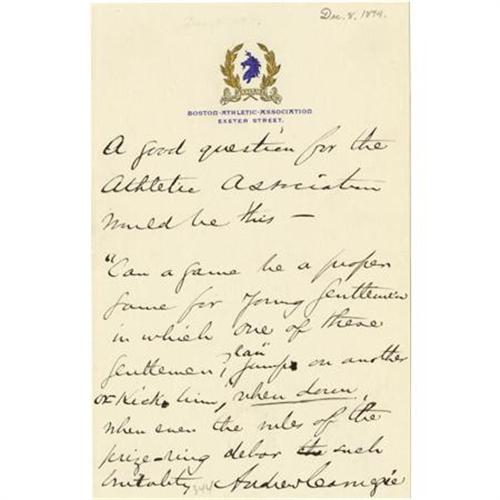 Dec. 8. 1894.
BOSTON-ATHLETIC-ASSOCIATION
EXETER STREET.
A good question for the
Athletic Association
would be this —
"Can a game be a proper
game for young Gentlemen
in which one of these
gentlemen, "can" jumps on another
or Kicks him, when down,
when even the rules of the
prize-ring debar such
brutality Andrew Carnegie
344